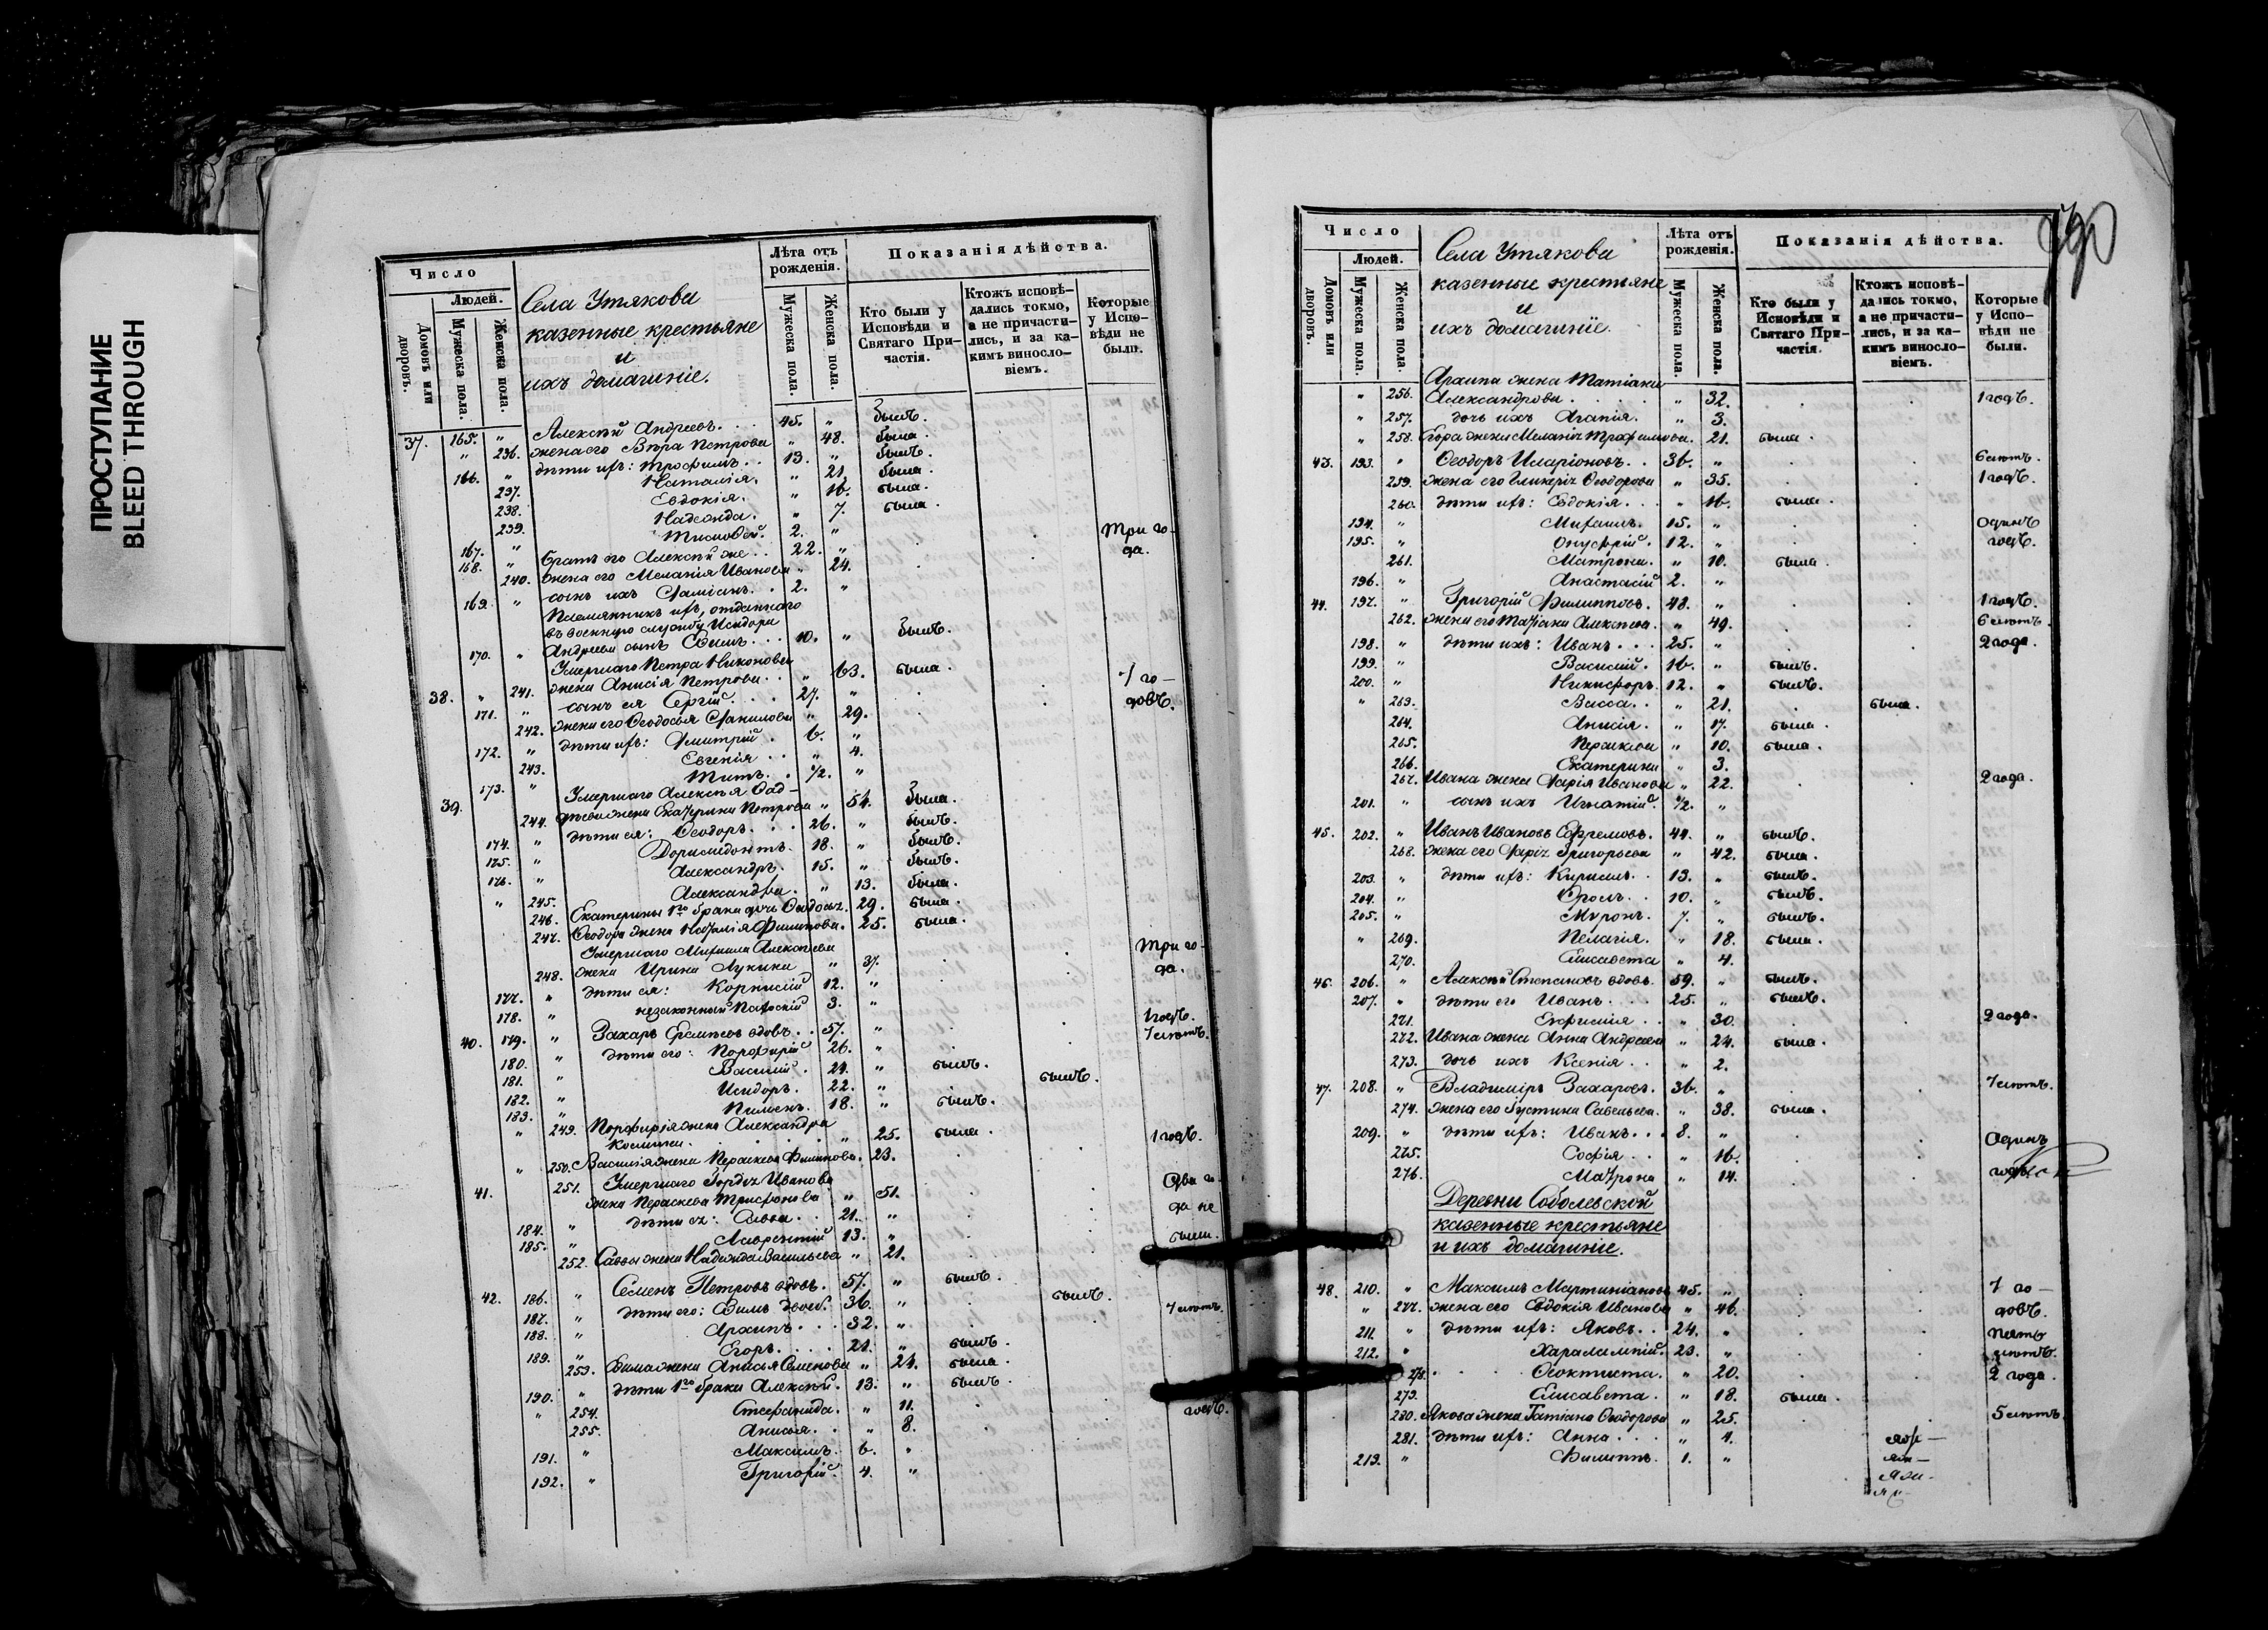 ПРОСТУПАНИЕ
BLEED THROUGH
Число
Людей.
Домовъ или дворовъ.
Мужеска пола.
Женска пола.
Села Утякова
казенные крестьяне
и
ихъ домашніе.
Лѣта отъ рожденія.
Мужеска пола.
Женска пола.
Показанія дѣйства.
Кто были у Исповѣди и Святаго Причастія.
Ктожъ исповѣдались токмо, а не причастились, и за какимъ винословіемъ.
Которые у Исповѣди не были.
37. 165. " Алексѣй Андреевъ. 45. " былъ.
" 236. жена его Вѣра Петрова " 48. была.
166. " дѣти ихъ: Трофимъ. 13. " былъ.
237. Наталія. " 21. была.
238. Евдокія. " 16. была.
239. Надежда. " 7. была.
167. " Тимофей. 2. "
168. " братъ его Алексѣй же. 22. " Три го-
240. жена его Меланія Иванова " 24. да.
169. " сынъ ихъ Даміанъ. 2. "
Племянникъ ихъ, отданнаго
въ военную службу Исидора
170. " Андреева сынъ Ефимъ. 10. " былъ.
Умершаго Петра Никонова
38. " 241. жена Анисія Петрова. " 63. была.
171. " сынъ ея Сергій. 27. " 7 го-
242. жена его Ѳеодосья Данилова " 29. довъ.
172. " дѣти ихъ: Димитрій. 6. "
243. Евгенія " 4.
173. " Титъ. 1/2. "
39. Умершаго Алексѣя Фад-
244. дѣева жена Екатерина Петрова " 54. была.
174. " дѣти ея: Ѳеодоръ. 26. " былъ.
175. " Доримедонтъ. 18. " былъ.
176. " Александръ. 15. " былъ.
" 245. Александра. " 13. была.
246. Екатерины 1го брака дочь Ѳеодосья. 29. была.
247. Ѳеодора жена Наталія Филипова. 25. была.
Умершаго Михаила Алексѣева
248. жена Ирина Лукина " 37. Три го-
да.
177. " дѣти ея: Корнилій 12. "
178. " незаконный 3. "
40. 179. " Захаръ вдовъ. 57. " 1 годъ.
180. " дѣти его: Порфирій 26. " 7 лѣтъ.
181. " Василій. 24. " былъ.
182. " Исидоръ. 22. " былъ.
183. " Пименъ. 18. " былъ.
" 249. Порфирія жена Александра
Козмина. " 25. была. 1 годъ.
" 250. Василія жена Параскева Филипова. 23.
41. 251. Умершаго Гордія Иванова Два го-
жена Параскева Трифонова " 51. да не
184. " дѣти ея: Савва. 21. " были.
185. " Лаврентій 13. "
252. Саввы жена Надежда Васильева " 21.
42. 186. " Семенъ Петровъ вдовъ. 57. " былъ.
187. " дѣти его: Филъ двоеб. 36. " былъ.
188. " Архипъ. 32. " 7 лѣтъ.
189. " Егоръ. 21. " былъ.
253. Фила жена Анисья Семенова " 24. была.
190. " дѣти 1го брака Алексѣй. 13. " былъ.
" 254. Стефанида. " 11. годъ.
255. Анисья. " 8.
191. " Максимъ. 6. "
192. " Григорій. 4. "
Число
Людей.
Домовъ или дворовъ.
Мужеска пола.
Женска пола.
Села Утякова
казенные крестьяне
и
ихъ домашніе.
Лѣта отъ рожденія.
Мужеска пола.
Женска пола.
Показанія дѣйства.
Кто были у Исповѣди и Святаго Причастія.
Ктожъ исповѣдались токмо, а не причастились, и за какимъ винословіемъ.
Которые у Исповѣди не были.
Архипа жена Татіана
" 256. Александрова " 32. 1 годъ.
" 257. дочь ихъ Агапія. " 3.
" 258. Егора жена Меланія Трофимова. 21. была.
43. 193. " Ѳеодоръ Иларіоновъ. 36. " 6 лѣтъ.
259. жена его Гликерія Ѳеодорова " 35. 1 годъ.
260. дѣти ихъ: Евдокія. " 16. была.
194. " Михаилъ. 15. " Одинъ
195. " Онуфрій. 12. " годъ.
261. Матрона. " 10. была.
196. " Анастасій 2. "
44. 197. " Григорій Филипповъ. 48. " 1 годъ.
262. жена его Алексѣева. " 49. 6 лѣтъ.
198. " дѣти ихъ: Иванъ. 25. " 2 года.
199. " Василій. 16. " былъ.
200. " Никифоръ. 12. " былъ.
" 263. Васса. " 21. была.
264. Анисія. " 17. была.
265. Параскева " 10. была.
266. Екатерина " 3.
267. Ивана жена Дарія Иванова " 22. 2 года.
201. " сынъ ихъ Игнатій. 1/2. "
45. 202. " Иванъ Ивановъ Ефремовъ. 44. " былъ.
268. жена его Дарія Григорьева " 42. была.
203. " дѣти ихъ: Кирилъ. 13. " былъ.
204. " Фролъ. 10. " былъ.
205. " Миронъ. 7. " былъ.
" 269. Пелагія. " 18. была.
270. Елисавета " 4.
46. 206. " Алексѣй Степановъ вдовъ. 59. " былъ.
207. " дѣти его Иванъ. 25. " былъ.
271. Евфимія. " 30. 2 года.
272. Ивана жена Анна Андреева " 24. была.
273. дочь ихъ Ксенія. " 2.
47. 208. " Владиміръ Захаровъ. 36. " 7 лѣтъ.
274. жена его Іустина Савельева. " 38. была.
209. " дѣти ихъ: Иванъ. 8. " Одинъ
275. Софія. " 16. годъ
276. Матрона " 14.
Деревни Соболевской
казенные крестьяне
и ихъ домашніе.
48. 210. " Максимъ Мартиніановъ 45. " 7 го-
" 277. жена его Евдокія Иванова " 46. довъ.
211. " дѣти ихъ: Яковъ. 24. " пять
212. " Харалампій. 23. " лѣтъ.
278. Ѳеоктиста. " 20. 2 года.
279. Елисавета. " 18. была.
280. Якова жена Татіана Ѳеодорова " 25. 5 лѣтъ.
281. дѣти ихъ: Анна. " 4.
213. " Филиппъ. 1. "